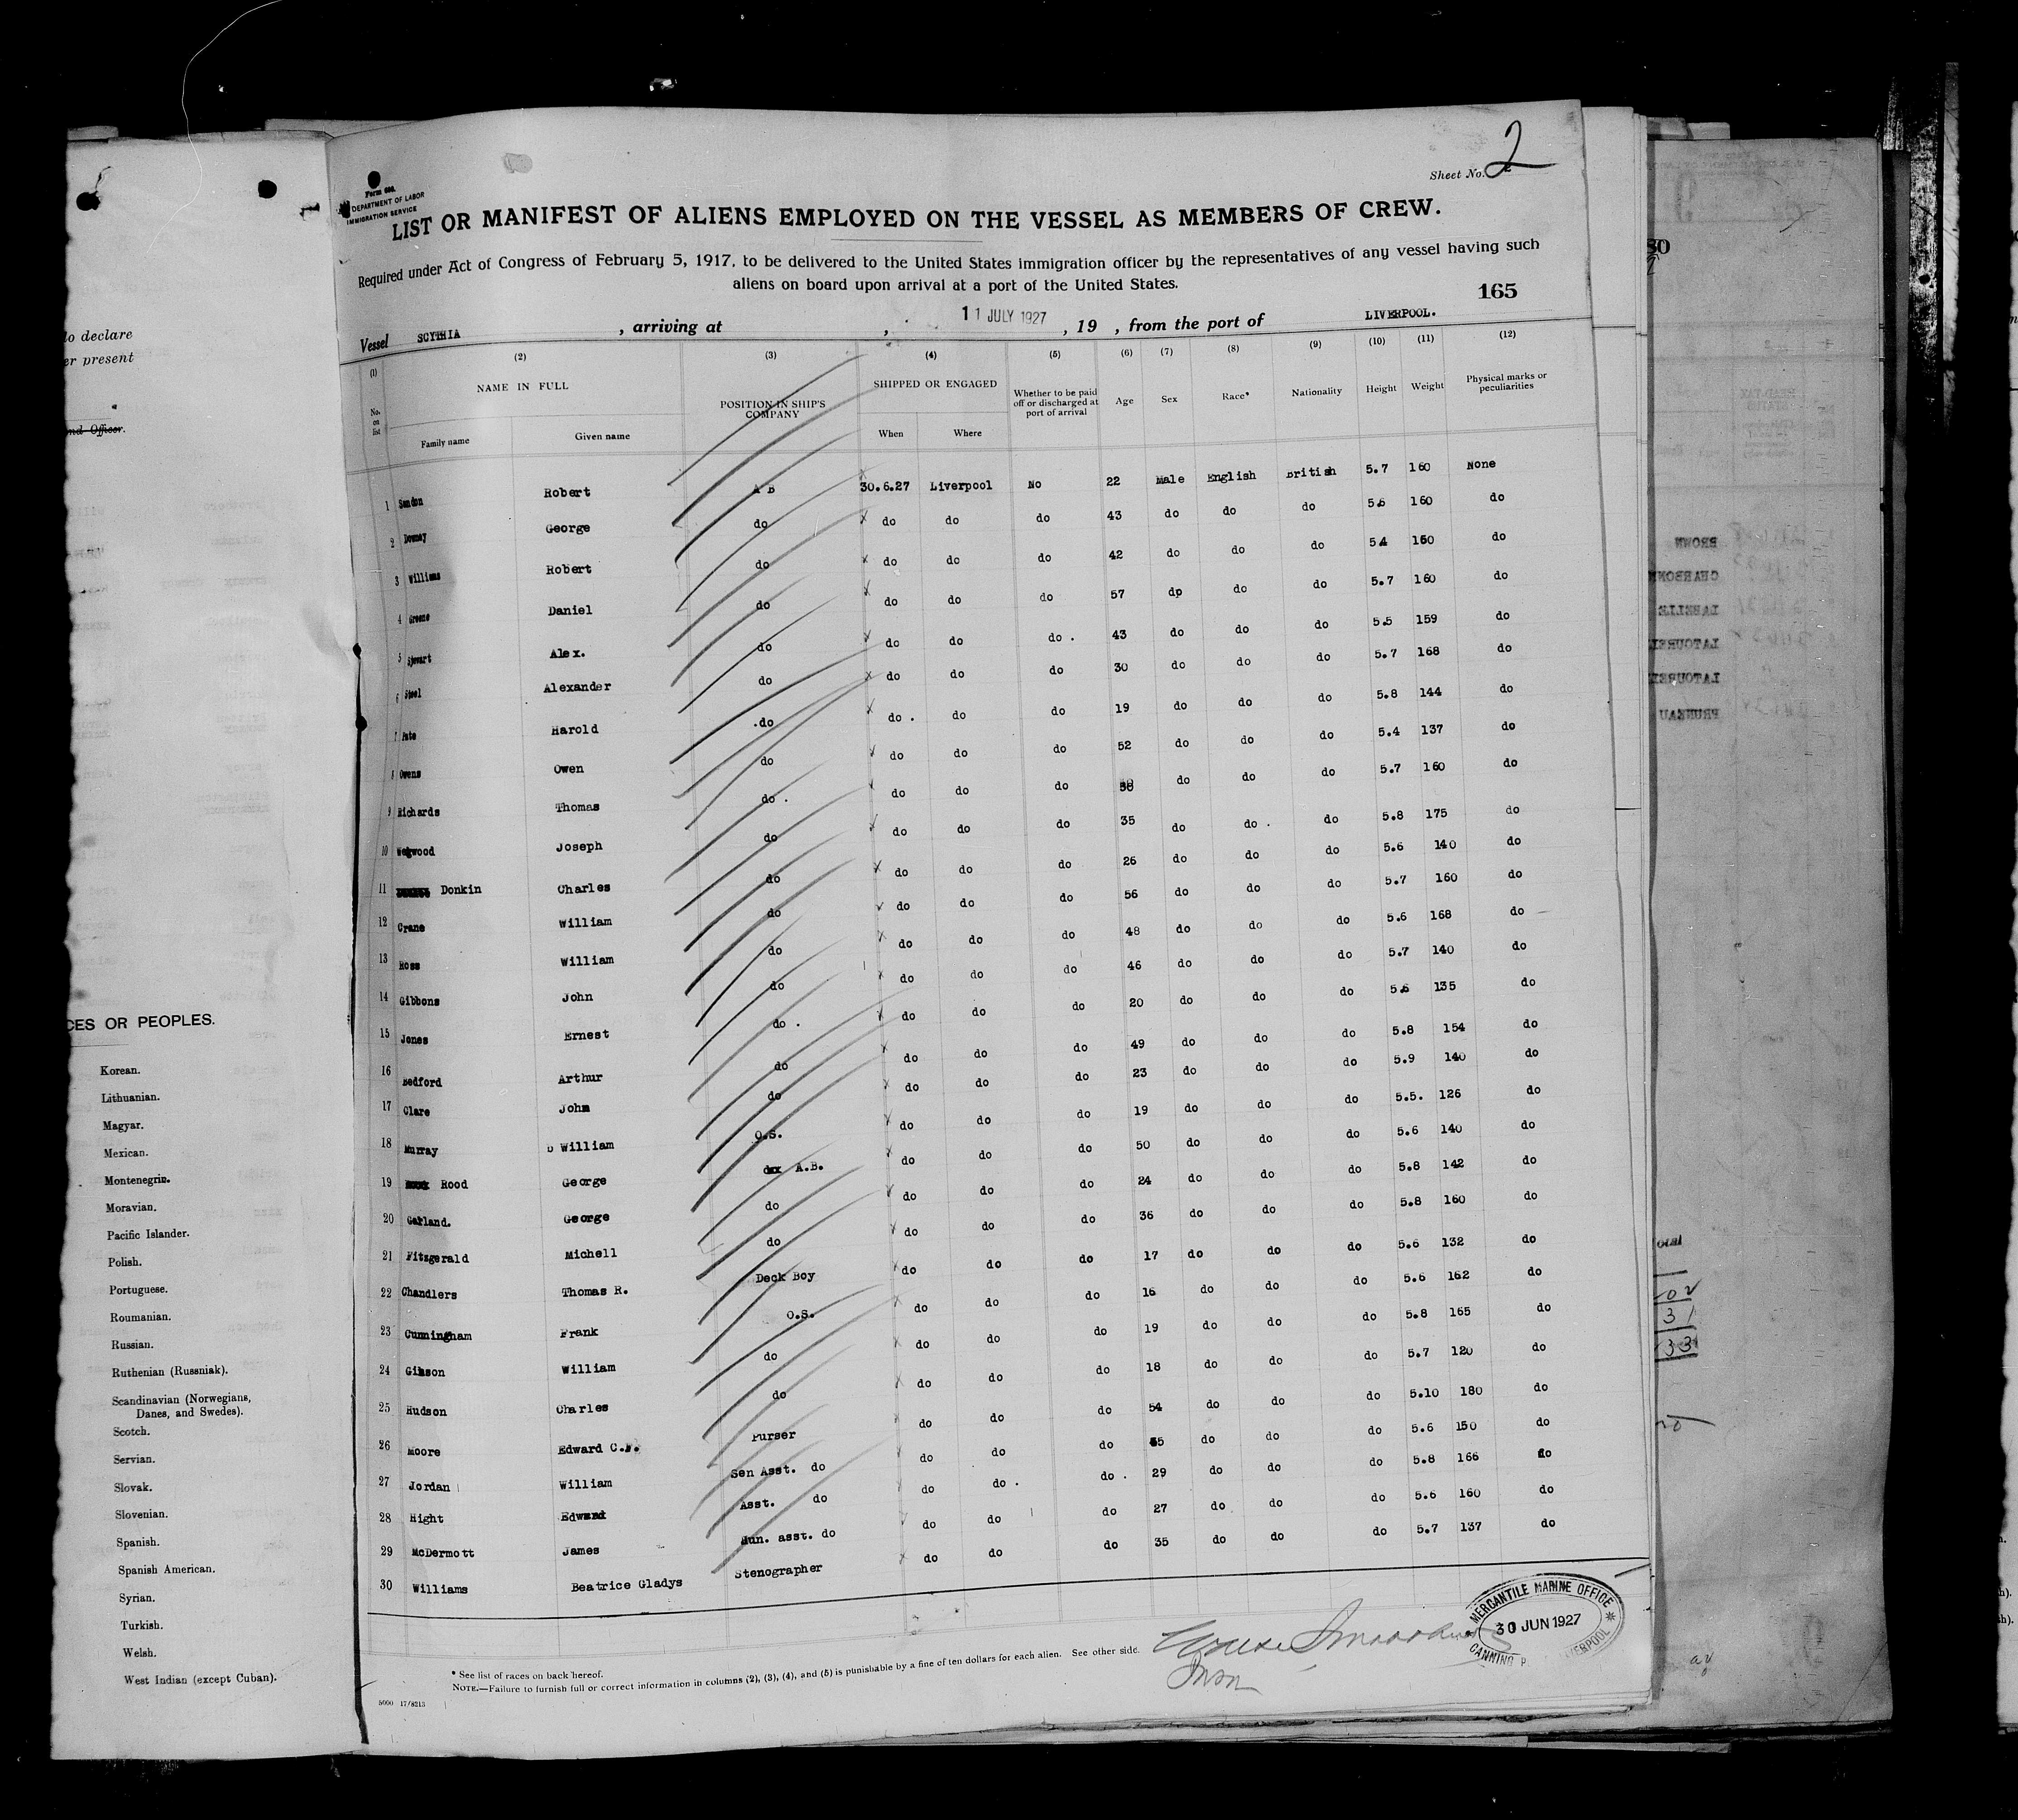 Sheet No. 2
Form 680.
DEPARTMENT OF LABOR
IMMIGRATION SERVICE
LIST OR MANIFEST OF ALIENS EMPLOYED ON THE VESSEL AS MEMBERS OF CREW.
Required under Act of Congress of February 5, 1917, to be delivered to the United States immigration officer by the representatives of any vessel having such
aliens on board upon arrival at a port of the United States.
165
Vessel SCYTHIA , arriving at , 11 JULY 1927 , 19 , from the port of LIVERPOOL.
(1) (2) (3) (4) (5) (6) (7) (8) (9) (10) (11) (12)
No. on list NAME IN FULL POSITION IN SHIP'S COMPANY SHIPPED OR ENGAGED Whether to be paid off or discharged at port of arrival Age Sex Race* Nationality Height Weight Physical marks or peculiarities
Family name Given name When Where
1 Sandon Robert A B 30.6.27 Liverpool No 22 Male English British 5.7 160 None
2 Downey George do do do do 43 do do do 5.6 160 do
3 Williams Robert do do do do 42 do do do 5.4 150 do
4 Greene Daniel do do do do 57 dp do do 5.7 160 do
5 Stewart Alex. do do do do . 43 do do do 5.5 159 do
6 Steel Alexander do do do do 30 do do do 5.7 168 do
7 Pate Harold .do do . do do 19 do do do 5.8 144 do
8 Owens Owen do do do do 52 do do do 5.4 137 do
9 Richards Thomas do . do do do do do do 5.7 160 do
10 Wegwood Joseph do do do do 35 do do . do 5.8 175 do
11 Donkin Charles do do do do 26 do do do 5.6 140 do
12 Crane William do do do do 56 do do do 5.7 160 do
13 Ross William do do do do 48 do do do 5.6 168 do
14 Gibbons John do do do do 46 do do do 5.7 140 do
15 Jones Ernest do . do do do 20 do do do 5.6 135 do
16 Bedford Arthur do do do do 49 do do do 5.8 154 do
17 Clare John do do do do 23 do do do 5.9 140 do
18 Murray William O.S. do do do 19 do do do 5.5. 126 do
19 Rood George A.B. do do do 50 do do do 5.6 140 do
20 Garland. George do do do do 24 do do do 5.8 142 do
21 Fitzgerald Michell do do do do 36 do do do 5.8 160 do
22 Chandlers Thomas R. Deck Boy do do do 17 do do do 5.6 132 do
23 Cunningham Frank O.S. do do do 16 do do do 5.6 162 do
24 Gibson William do do do do 19 do do do 5.8 165 do
25 Hudson Charles do do do do 18 do do do 5.7 120 do
26 Moore Edward C. Purser do do do 54 do do do 5.10 180 do
27 Jordan William Sen Asst. do do do do 55 do do do 5.6 150 do
28 Hight Edward Asst. do do do . do . 29 do do do 5.8 166 do
29 McDermott James Jun. asst. do do do do 27 do do do 5.6 160 do
30 Williams Beatrice Gladys Stenographer do do do 35 do do do 5.7 137 do
* See list of races on back hereof.
NOTE.—Failure to furnish full or correct information in columns (2), (3), (4), and (5) is punishable by a fine of ten dollars for each alien. See other side.
5000 17/8213
MERCANTILE MARINE OFFICE
30 JUN 1927
CANNING P LIVERPOOL
to declare
er present
nd Officer.
CES OR PEOPLES.
Korean.
Lithuanian.
Magyar.
Mexican.
Montenegrin.
Moravian.
Pacific Islander.
Polish.
Portuguese.
Roumanian.
Russian.
Ruthenian (Russniak).
Scandinavian (Norwegians,
Danes, and Swedes).
Scotch.
Servian.
Slovak.
Slovenian.
Spanish.
Spanish American.
Syrian.
Turkish.
Welsh.
West Indian (except Cuban).
80
BROWN
LABELLE
PRUNEAU
otal
31
33